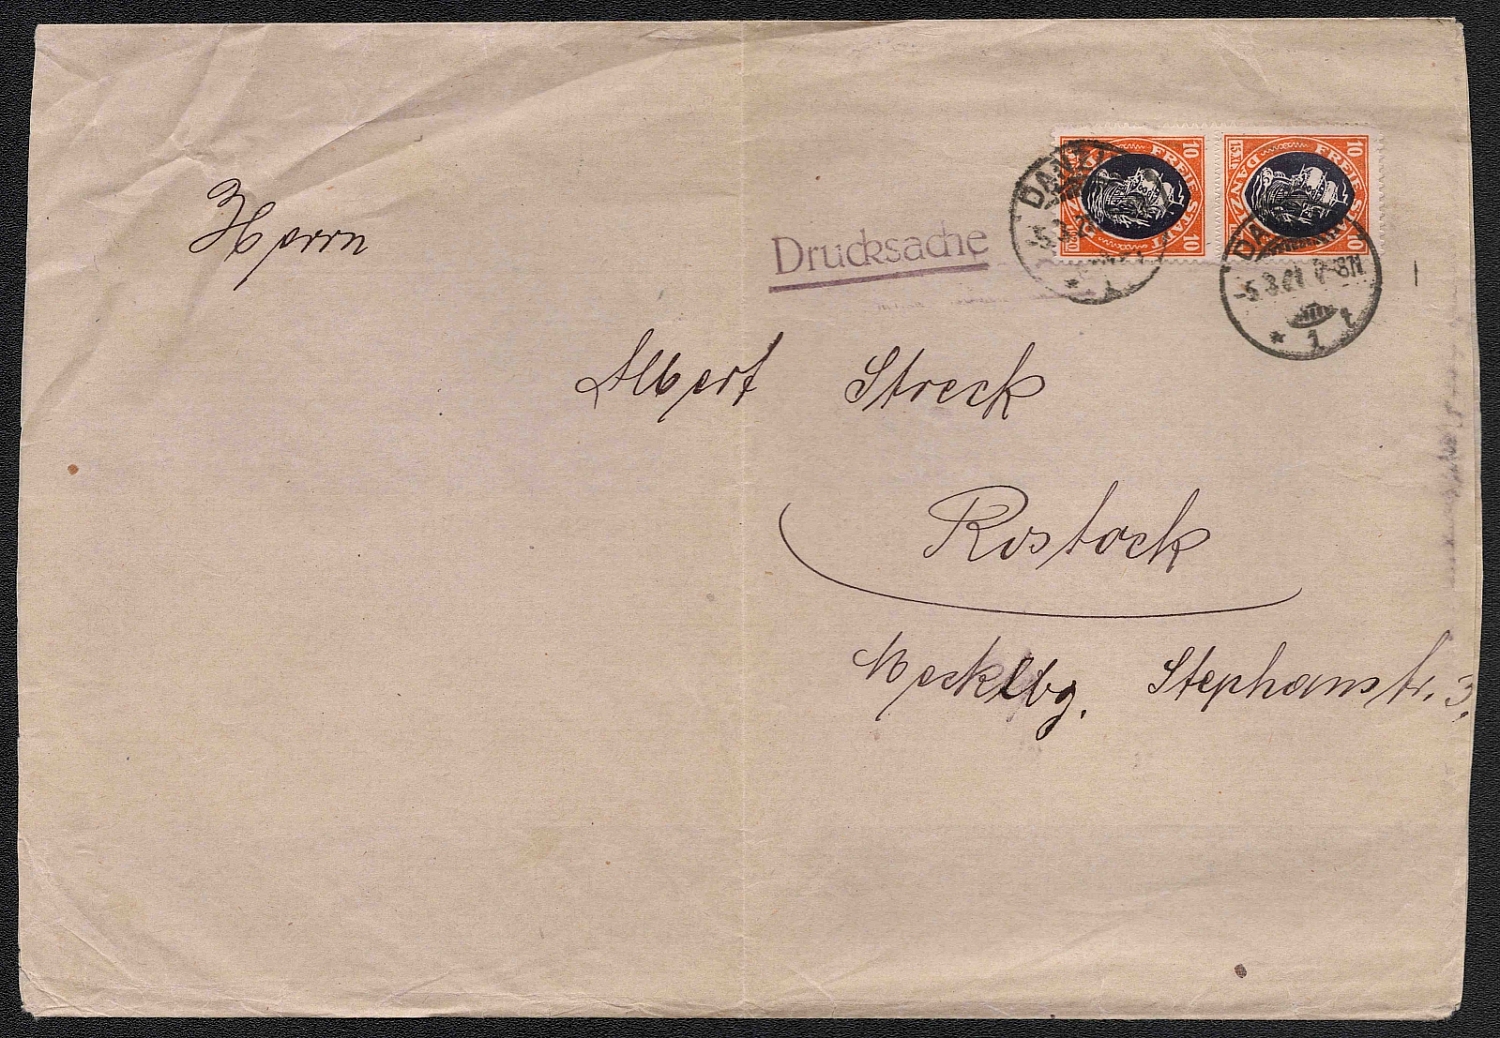 10 FREIE STADT 10
10 FREIE STADT 10
15.11. DANZIG
DANZIG
-5.3.21 7-8N
* 1 t
Drucksache
Herrn
Albert Streck
Rostock
Mecklbg. Stephanstr. 3.